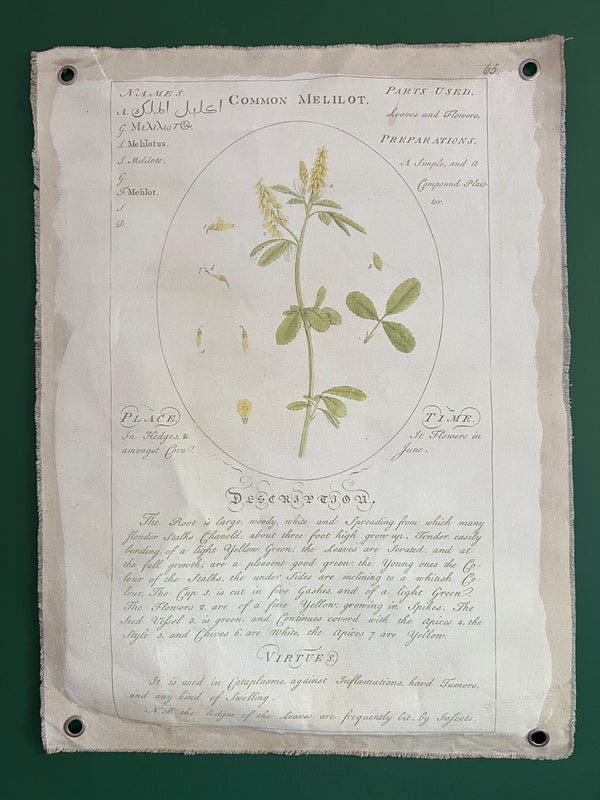 65
NAMES.
A. اكليل الملك
G. Μελιλωτ
L. Melilotus.
I. Meliloto.
G.
F. Melilot.
S
D.
COMMON MELILOT.
PARTS USED.
Leaves and Flowers,
PREPARATIONS.
A Simple, and a
Compound Plais-
ter.
PLACE.
In Hedges, &
amongst Corn.
TIME.
It Flowers in
June.
DESCRIPTION.
The Root is large, woody, white and Spreading, from which many
slender Stalks Chaneld, about three foot high grow up, Tender easily
bending, of a light Yellow Green, the Leaves are Serated, and at
the full growth, are a pleasent good green; the Young ones the Co-
lour of the Stalks, the under Sides are inclining to a whitish Co-
lour; The Cup 1, is cut in five Gashes, and of a light Green.
The Flowers 2, are of a fine Yellow, growing in Spikes. The
Seed Vessel 3, is green, and Continues coverd with the Apices 4, the
Style 5, and Chives 6, are White, the Apices 7 are Yellow.
VIRTUES.
It is used in Cataplasms, against Inflamations, hard Tumors,
and any kind of Swelling.
N.B. the Edges of the Leaves are frequently bit by Insects.